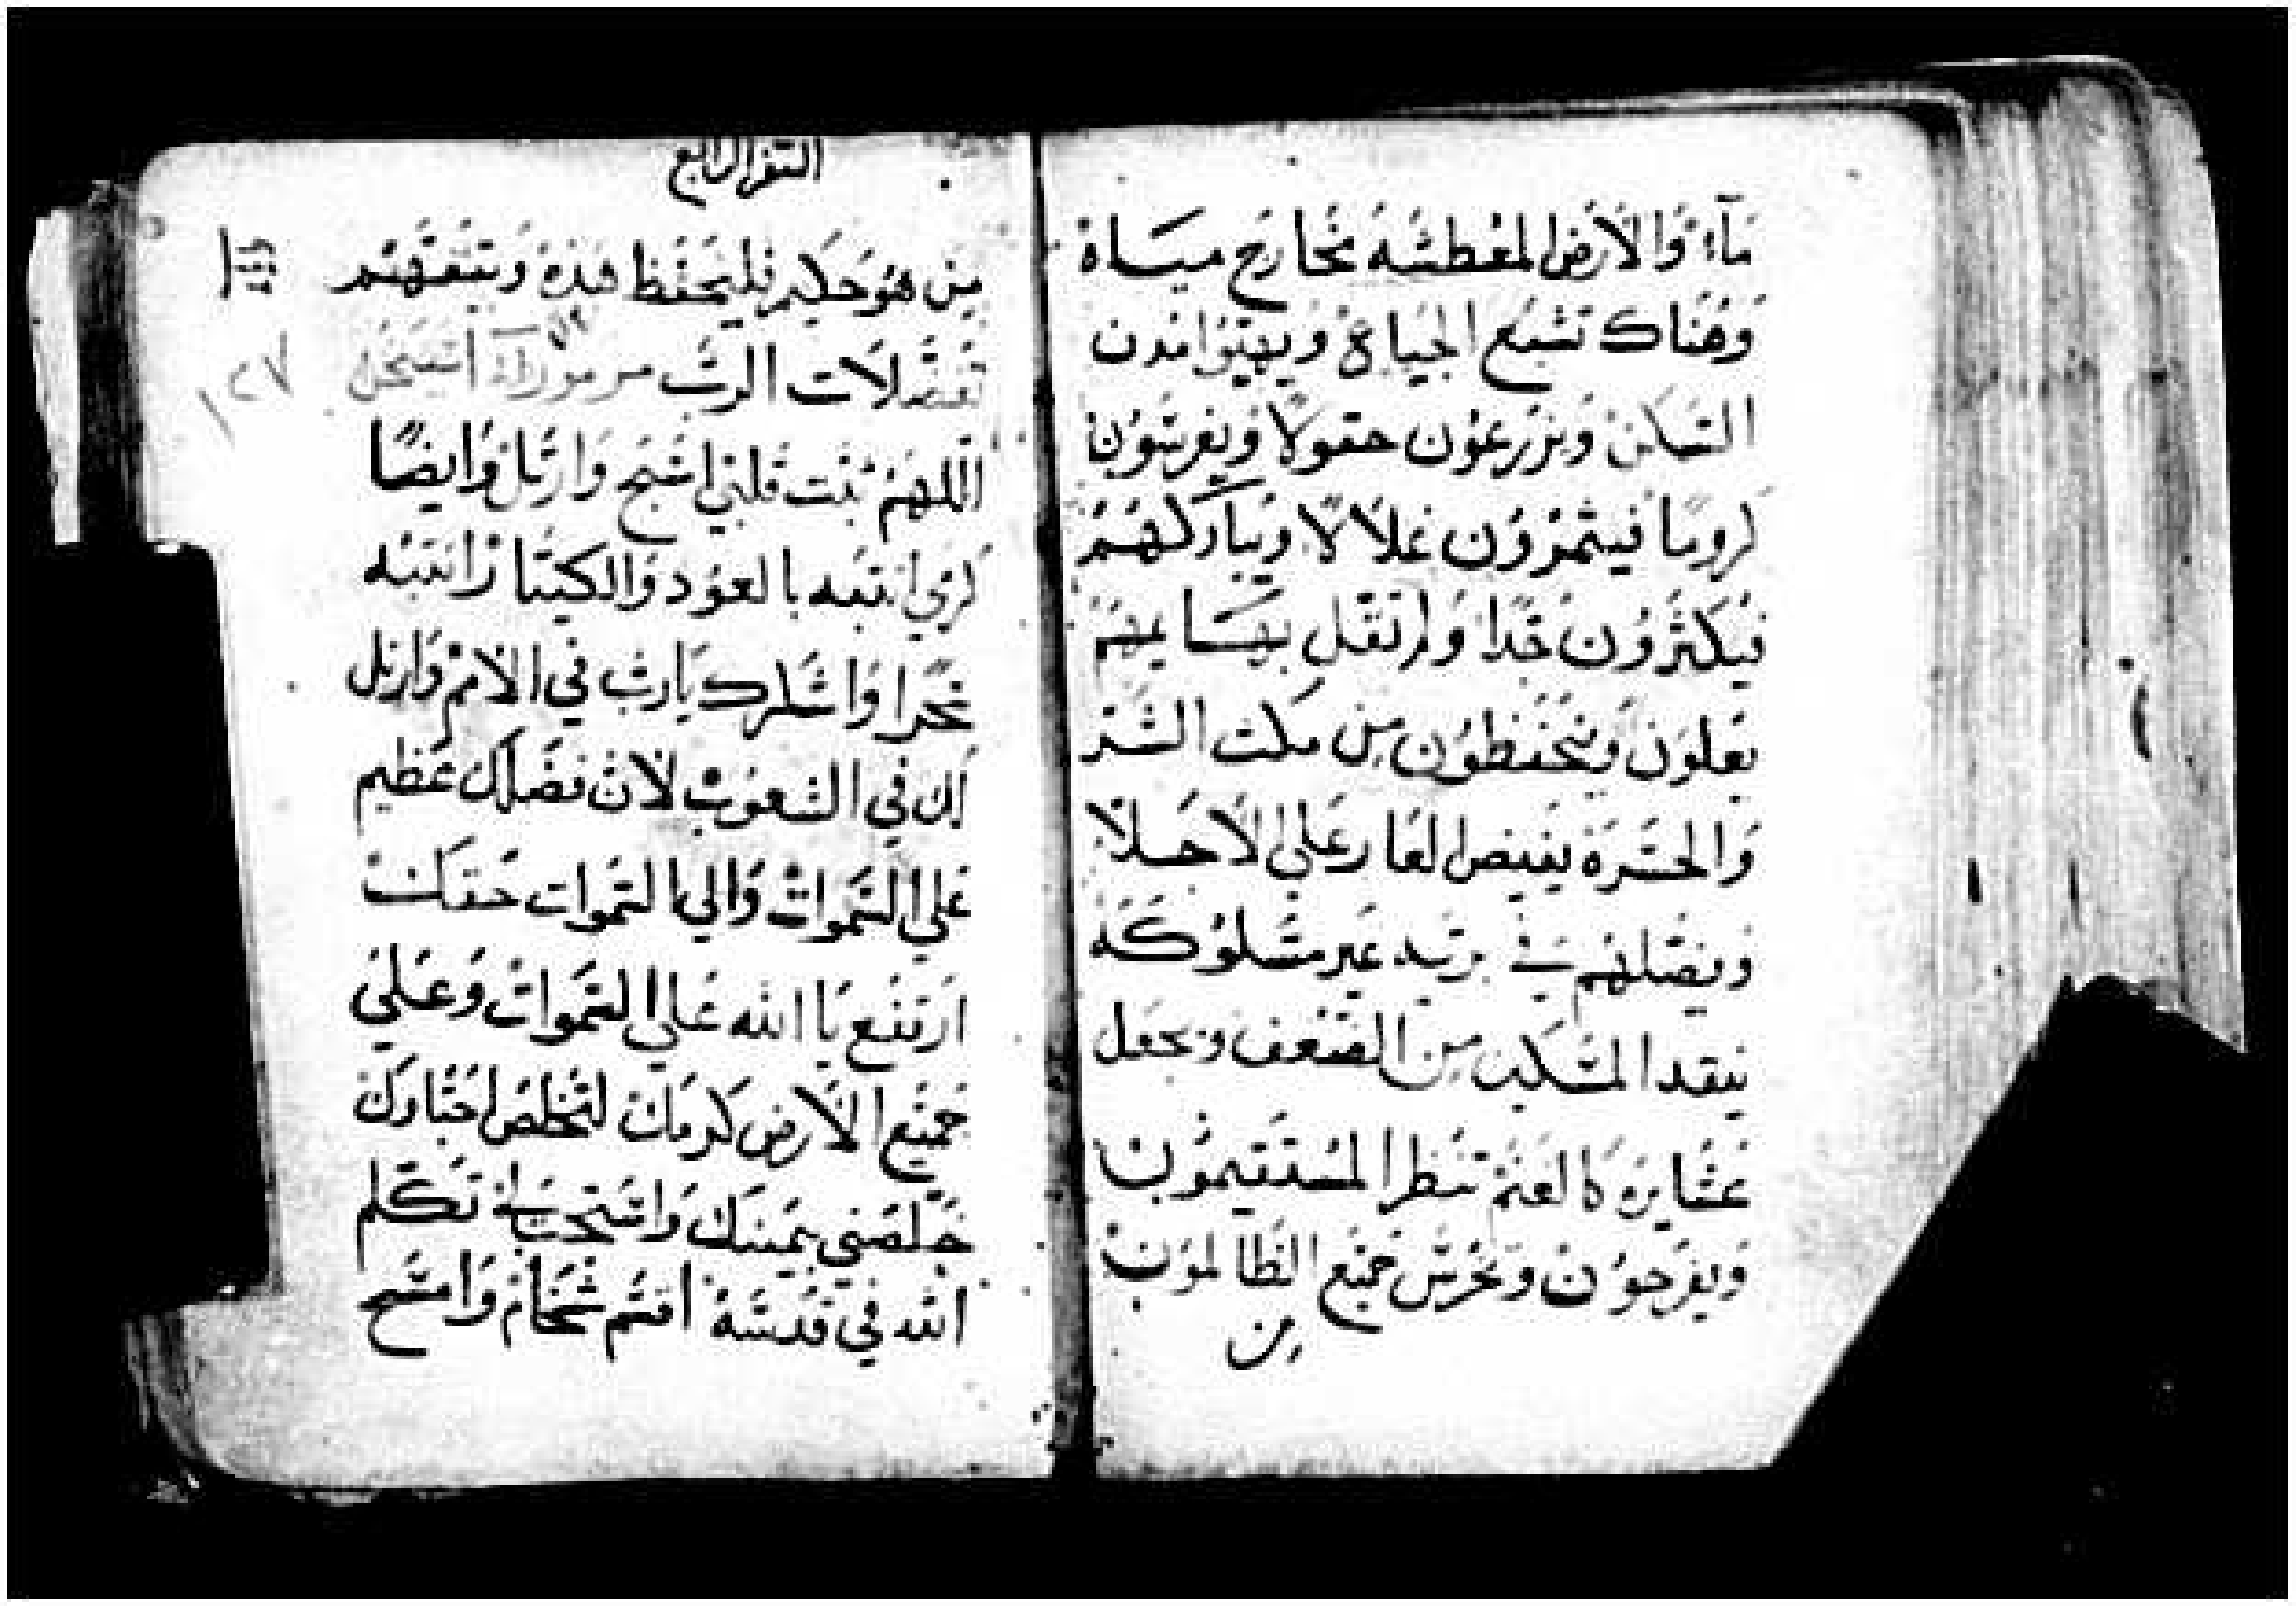 مَآءً وَالأرض المعطشه مخارج مياه
وهناك تشبع الجياع ويهيوا مدن
السكن ويزرعون حقولاً ويغرسون
كروما فيثمرون غلالا ويباركهم
فيكثرون جدا ولم تقل بهايمهم
يعلون ويحفظون من مكث الشر
والحسره يفيض العار على الأجلا
ويضلهم في بريه غير مسلوكه
ينقد المسكين من الضعف ويجعل
عشايره كالغنم تنظر المستقيمون
ويفرحون ويخرس جميع الظالمون
من
السفر الرابع
من هو حكيم فليحفظ هذه ويتفهم
تفضلات الرب مزمور استعن
اللهم ثبت قلبي اسبح وارتل وايضًا
كري انتبه بالعود والكيتار انتبه
سحرا واشكرك يارب في الامم وارتل
لك في الشعوب لان فضلك عظيم
علي السموات والي السموات حقك
ارتفع يا الله علي السموات وعلي
جميع الأرض كرمك لتخلص احباوك
خلصني بيمينك واستجيب لي تكلم
الله في قدسه اقسم شخام وامسح